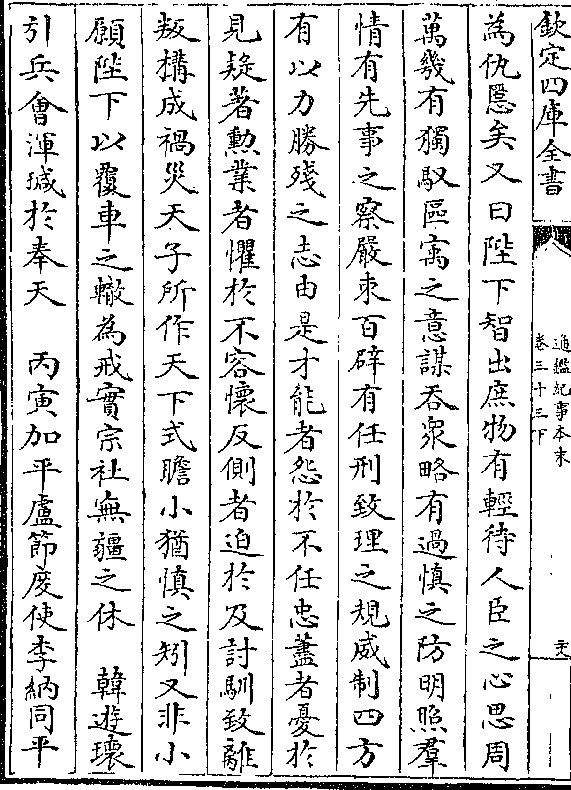 欽定四庫全書
通鑑紀事本末
卷三十三下
為仇隱矣又曰陛下智出庶物有輕待人臣之心思周
萬幾有獨馭區寓之意謀吞衆略有過慎之防明照羣
情有先事之察嚴束百辟有任刑致理之規威制四方
有以力勝殘之志由是才能者怨於不任忠藎者憂於
見疑著勲業者懼於不容懷反側者迫於及討馴致離
叛構成禍災天子所作天下式瞻小猶慎之矧又非小
願陛下以覆車之轍為戒實宗社無疆之休　韓遊瓌
引兵會渾瑊於奉天　丙寅加平盧節度使李納同平